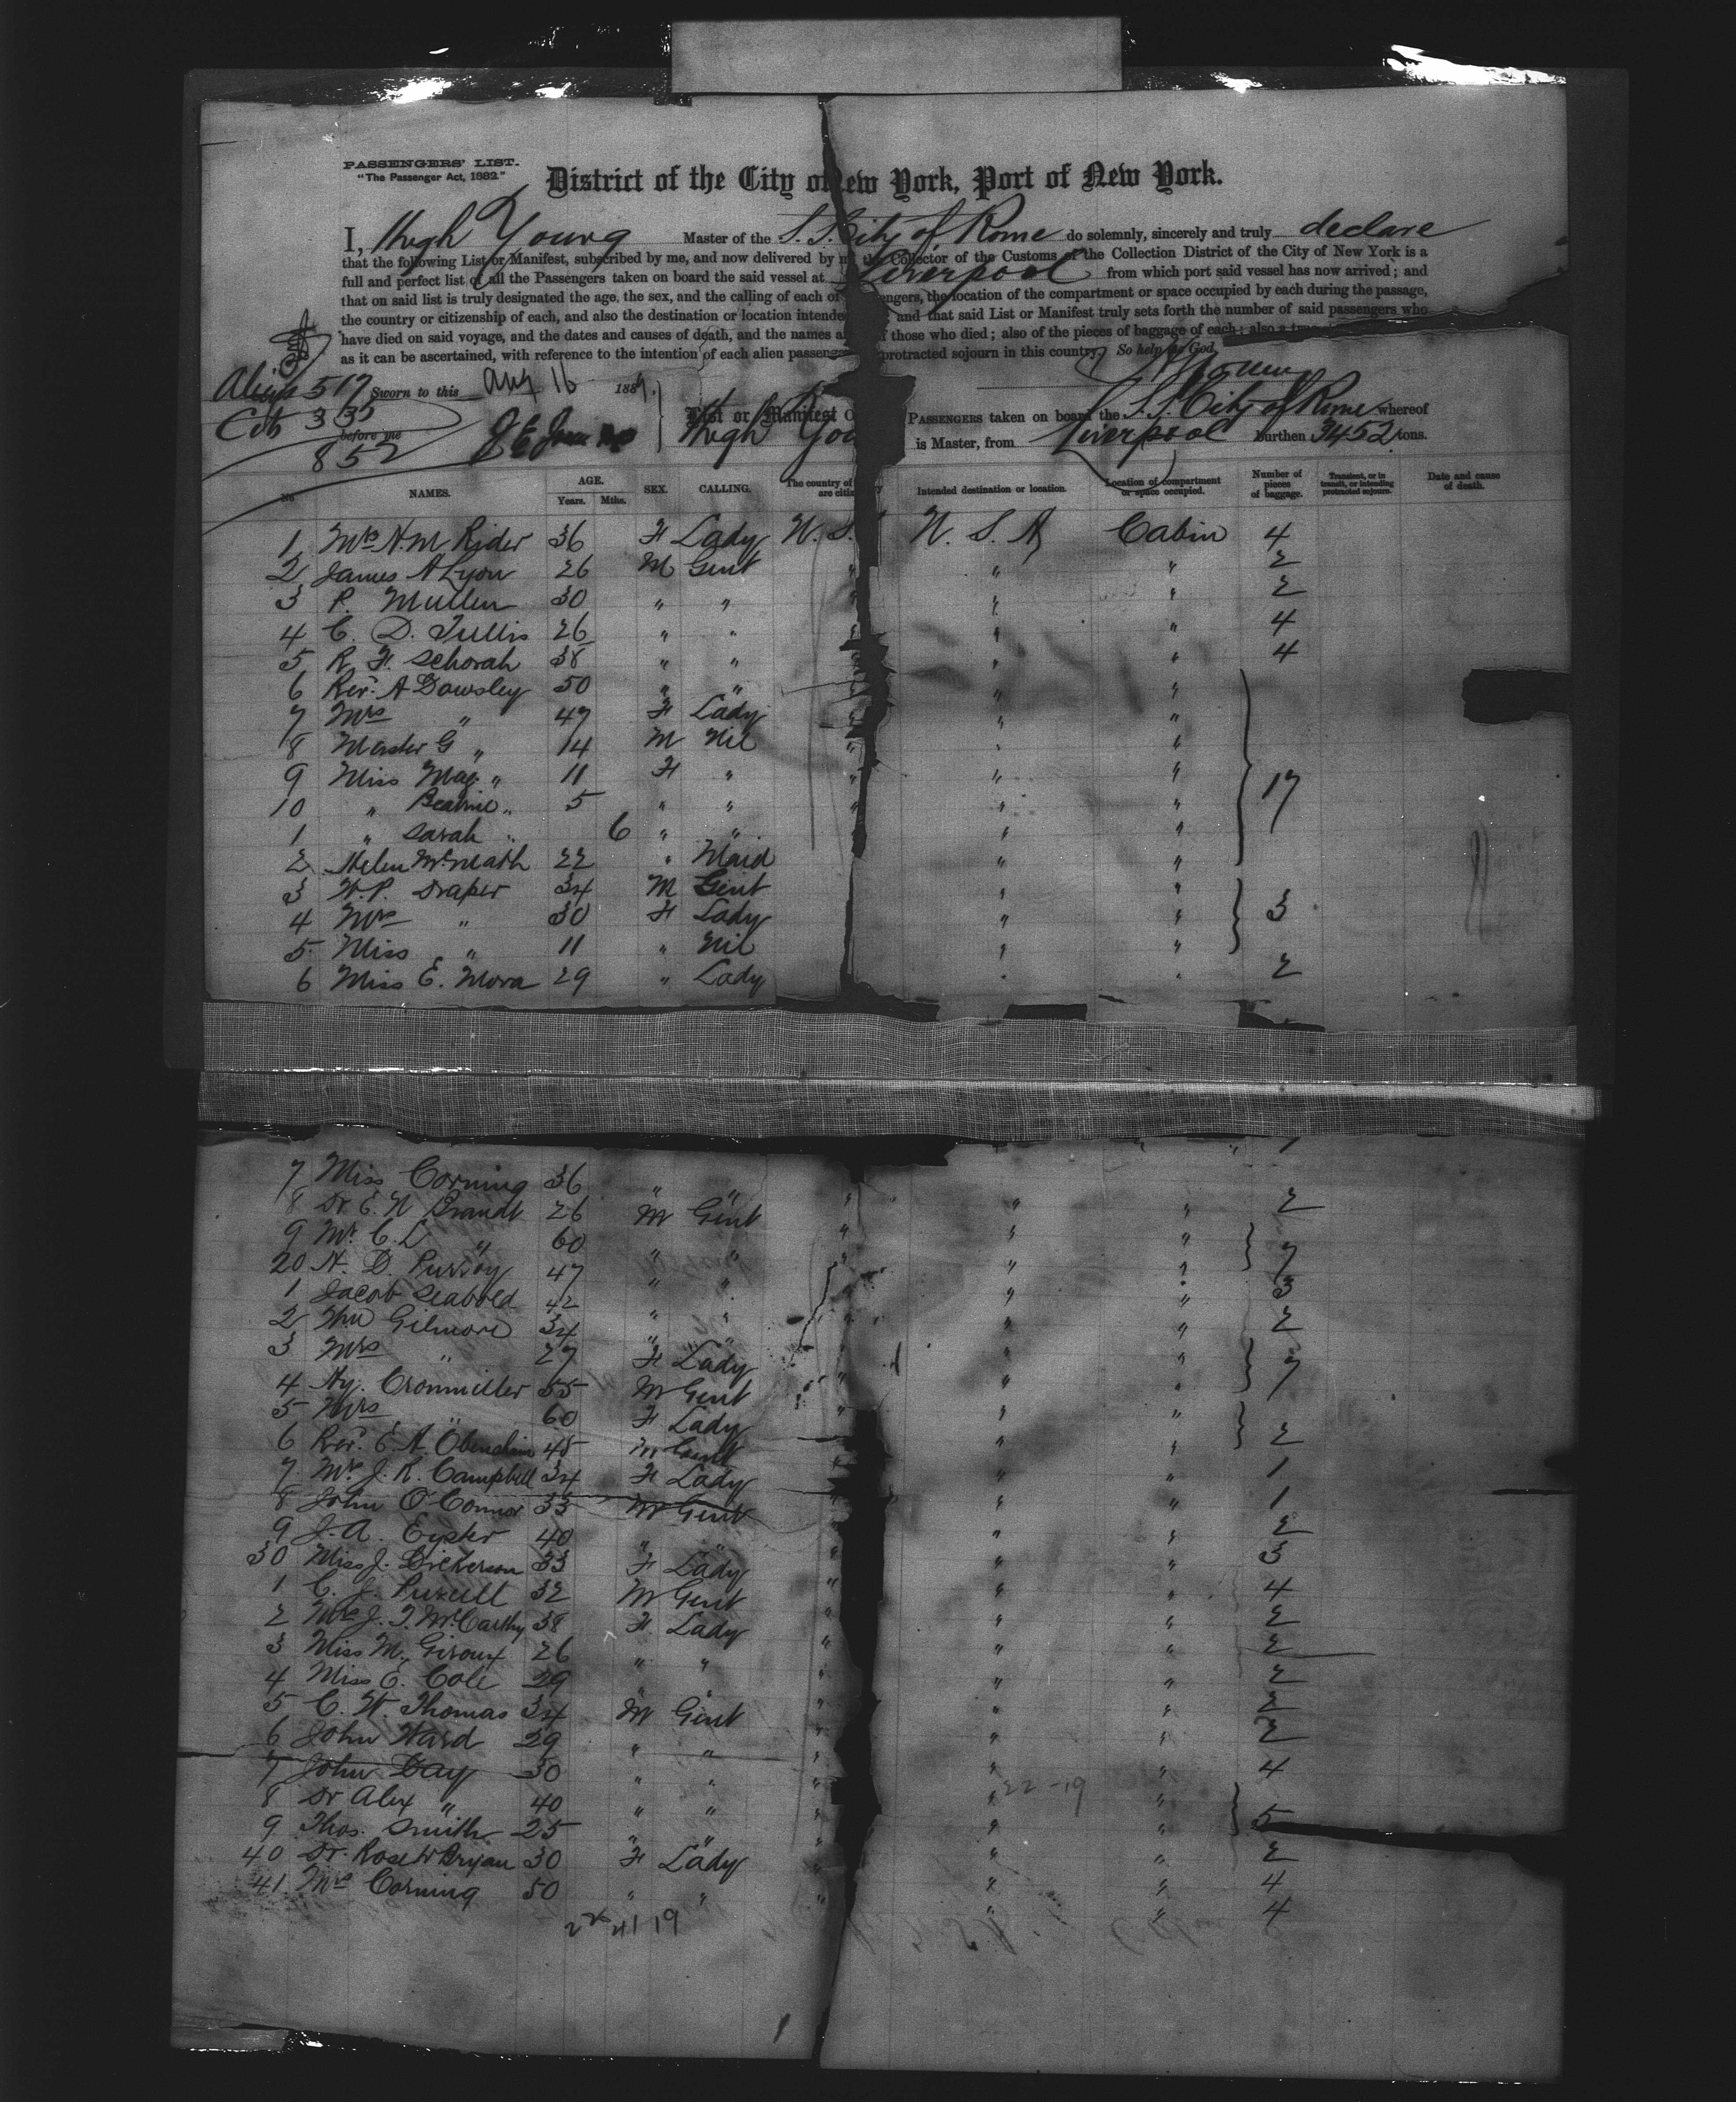 PASSENGERS' LIST.
"The Passenger Act, 1882."
District of the City of New York, Port of New York.
I, Hugh Young Master of the S.S. City of Rome do solemnly, sincerely and truly declare
that the following List or Manifest, subscribed by me, and now delivered by me the Collector of the Customs of the Collection District of the City of New York is a
full and perfect list of all the Passengers taken on board the said vessel at Liverpool from which port said vessel has now arrived; and
that on said list is truly designated the age, the sex, and the calling of each of engers, the location of the compartment or space occupied by each during the passage,
the country or citizenship of each, and also the destination or location intende and that said List or Manifest truly sets forth the number of said passengers who
have died on said voyage, and the dates and causes of death, and the names a f those who died; also of the pieces of baggage of each; also a true
as it can be ascertained, with reference to the intention of each alien passenge protracted sojourn in this country. So help me God.
Aliens 517 Sworn to this Aug 16 188
Cits 335
before me
852
List or Manifest O PASSENGERS taken on board the S.S. City of Rome whereof
Hugh You is Master, from Liverpool burthen 3452 tons.
No NAMES. AGE. Years. Mths. SEX. CALLING. The country of are citiz Intended destination or location. Location of compartment or space occupied. Number of pieces of baggage. Transient, or in transit, or intending protracted sojourn. Date and cause of death.
1 Mrs H.M Rider 36 F Lady U.S. U.S.A Cabin 4
2 James A Lyon 26 M Gent " " " 2
3 P. Mullen 30 " " " " " 2
4 C. D. Tullis 26 " " " " 4
5 R. F. Schorah 38 " " " " 4
6 Rev. A Dowsley 50 " " " "
7 Mrs " 47 F Lady " "
8 Master G " 14 M Nil " " "
9 Miss Mag. " 11 F " " " " 17
10 " Beatrice " 5 " " " " "
1 " Sarah " 6 " " " "
2 Helen McMath 22 " Maid " "
3 W.P. Draper 34 M Gent " "
4 Mrs " 30 F Lady " " 3
5 Miss " 11 " Nil " "
6 Miss E. Mora 29 " Lady " " 2
7 Miss Corning 36 " " " " 1
8 Dr E. N Brandt 26 M Gent " " " 2
9 Mr C. L " 60 " " " " "
20 H. D. Purroy 47 " " " " " 7
1 Jacob Seabold 42 " " " " 3
2 Wm Gilmore 34 " " " " 2
3 Mrs " 27 F Lady " "
4 Hy. Cronmiller 55 M Gent " " " 7
5 Mrs " 60 F Lady " "
6 Rev. E. A. Obenchain 45 M Gent " " 2
7 Mrs J. R. Campbell 34 F Lady " " 1
8 John O'Connor 33 M Gent " " 1
9 J. A. Eyster 40 " " " " 2
30 Miss J. Dickerson 33 F Lady " " " 3
1 C. J. Purcell 32 M Gent " " " 4
2 Mrs J. T. McCarthy 38 F Lady " " " 2
3 Miss M. Giroux 26 " " " " " 2
4 Miss E. Cole 29 " " " " " 2
5 C. W. Thomas 34 M Gent " " " 2
6 John Ward 29 " " " " " 2
7 John Day 30 " " " " " 4
8 Dr Alex " 40 " " " " "
9 Thos. Smith 25 " " " " " 5
40 Dr. Rose W Bryan 30 F Lady " " " 2
41 Mrs Corning 50 " " " " " 4
4
22-19
22 41 19